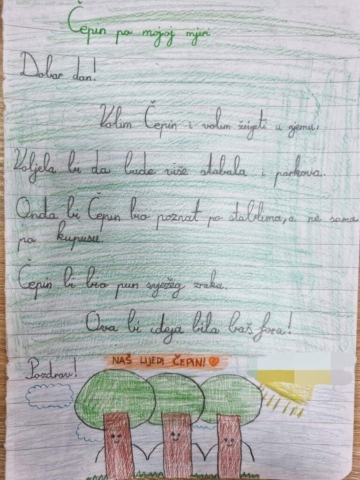 Čepin po mojoj mjeri
Dobar dan!
Volim Čepin i volim živjeti u njemu.
Voljela bi da bude više stabala i parkova.
Onda bi Čepin bio poznat po stablima, a ne samo
po kupusu.
Čepin bi bio pun svježeg zraka.
Ova bi ideja bila baš fora!
Pozdrav!
NAŠ LIJEPI ČEPIN!